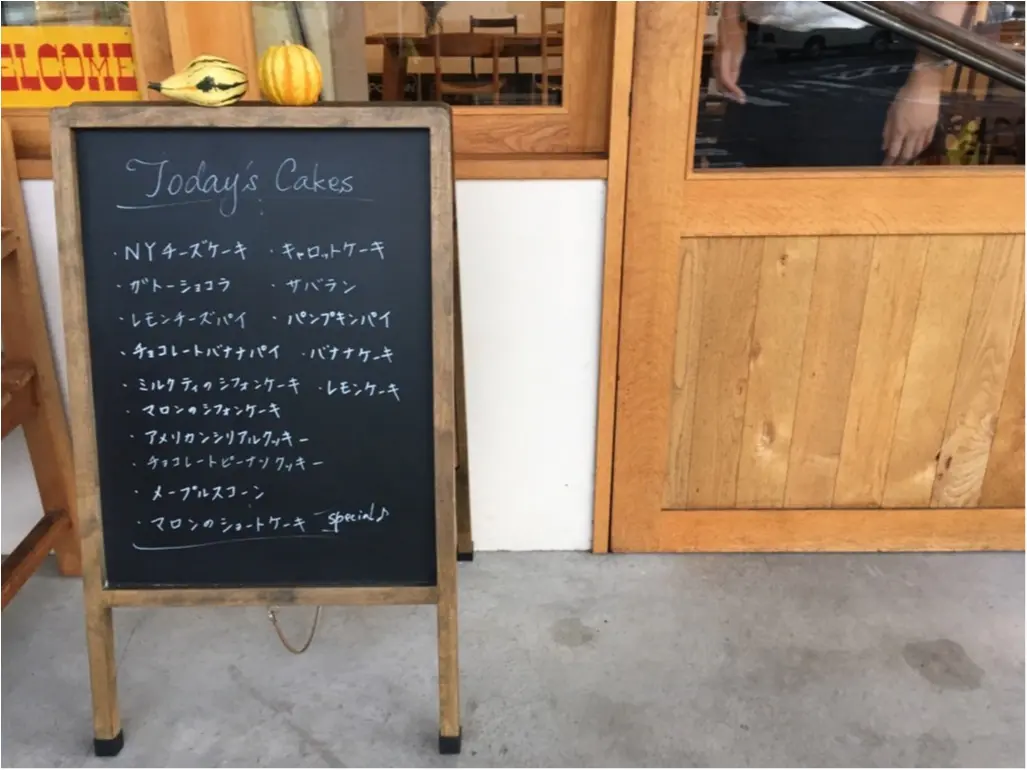 WELCOME
Today's Cakes
・NYチーズケーキ ・キャロットケーキ
・ガトーショコラ ・サバラン
・レモンチーズパイ ・パンプキンパイ
・チョコレートバナナパイ ・バナナケーキ
・ミルクティのシフォンケーキ ・レモンケーキ
・マロンのシフォンケーキ
・アメリカンシリアルクッキー
・チョコレートピーナツクッキー
・メープルスコーン
・マロンのショートケーキ special♪